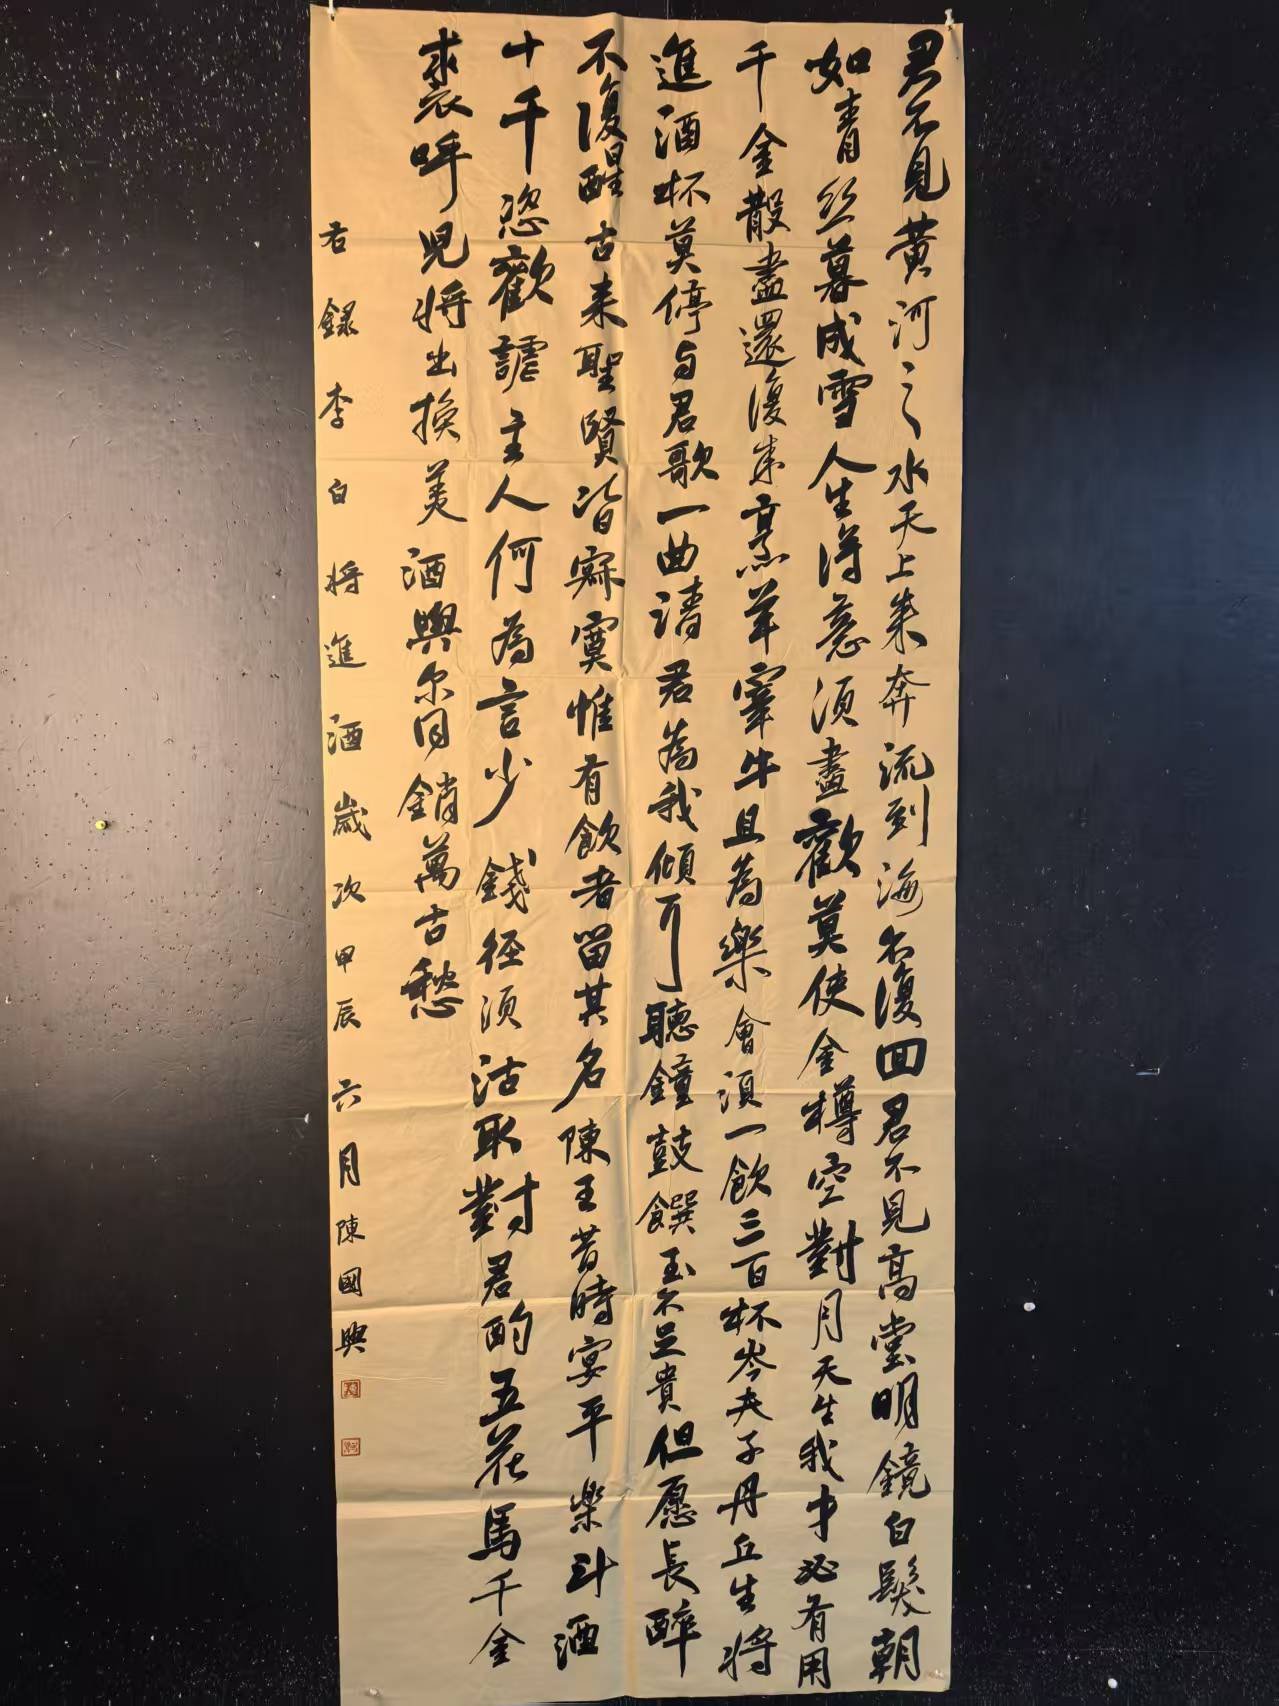 君不見黃河之水天上来奔流到海不復回君不見高堂明鏡白髮朝
如青丝暮成雪人生得意須盡歡莫使金樽空對月天生我才必有用
千金散盡還復来烹羊宰牛且為樂會須一飲三百杯岑夫子丹丘生將
進酒杯莫停与君歌一曲請君為我傾耳聽鐘鼓饌玉不足貴但愿長醉
不復醒古来聖賢皆寂寞惟有飲者留其名陳王昔時宴平樂斗酒
十千恣歡謔主人何為言少錢径須沽取對君酌五花馬千金
裘呼兒將出換美酒與尔同銷萬古愁
右録李白將進酒歲次甲辰六月陳國興